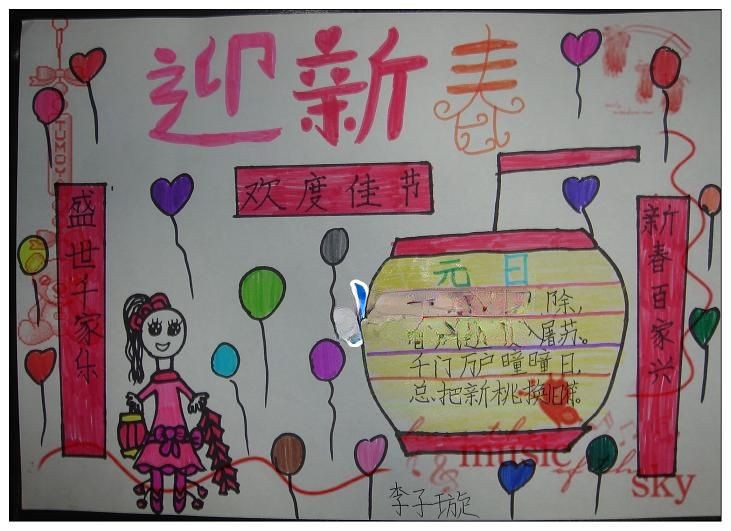 迎新春
欢度佳节
盛世千家乐
新春百家兴
元日
除,
屠苏。
千门万户曈曈日,
总把新桃换旧符。
李子璇
music
sky